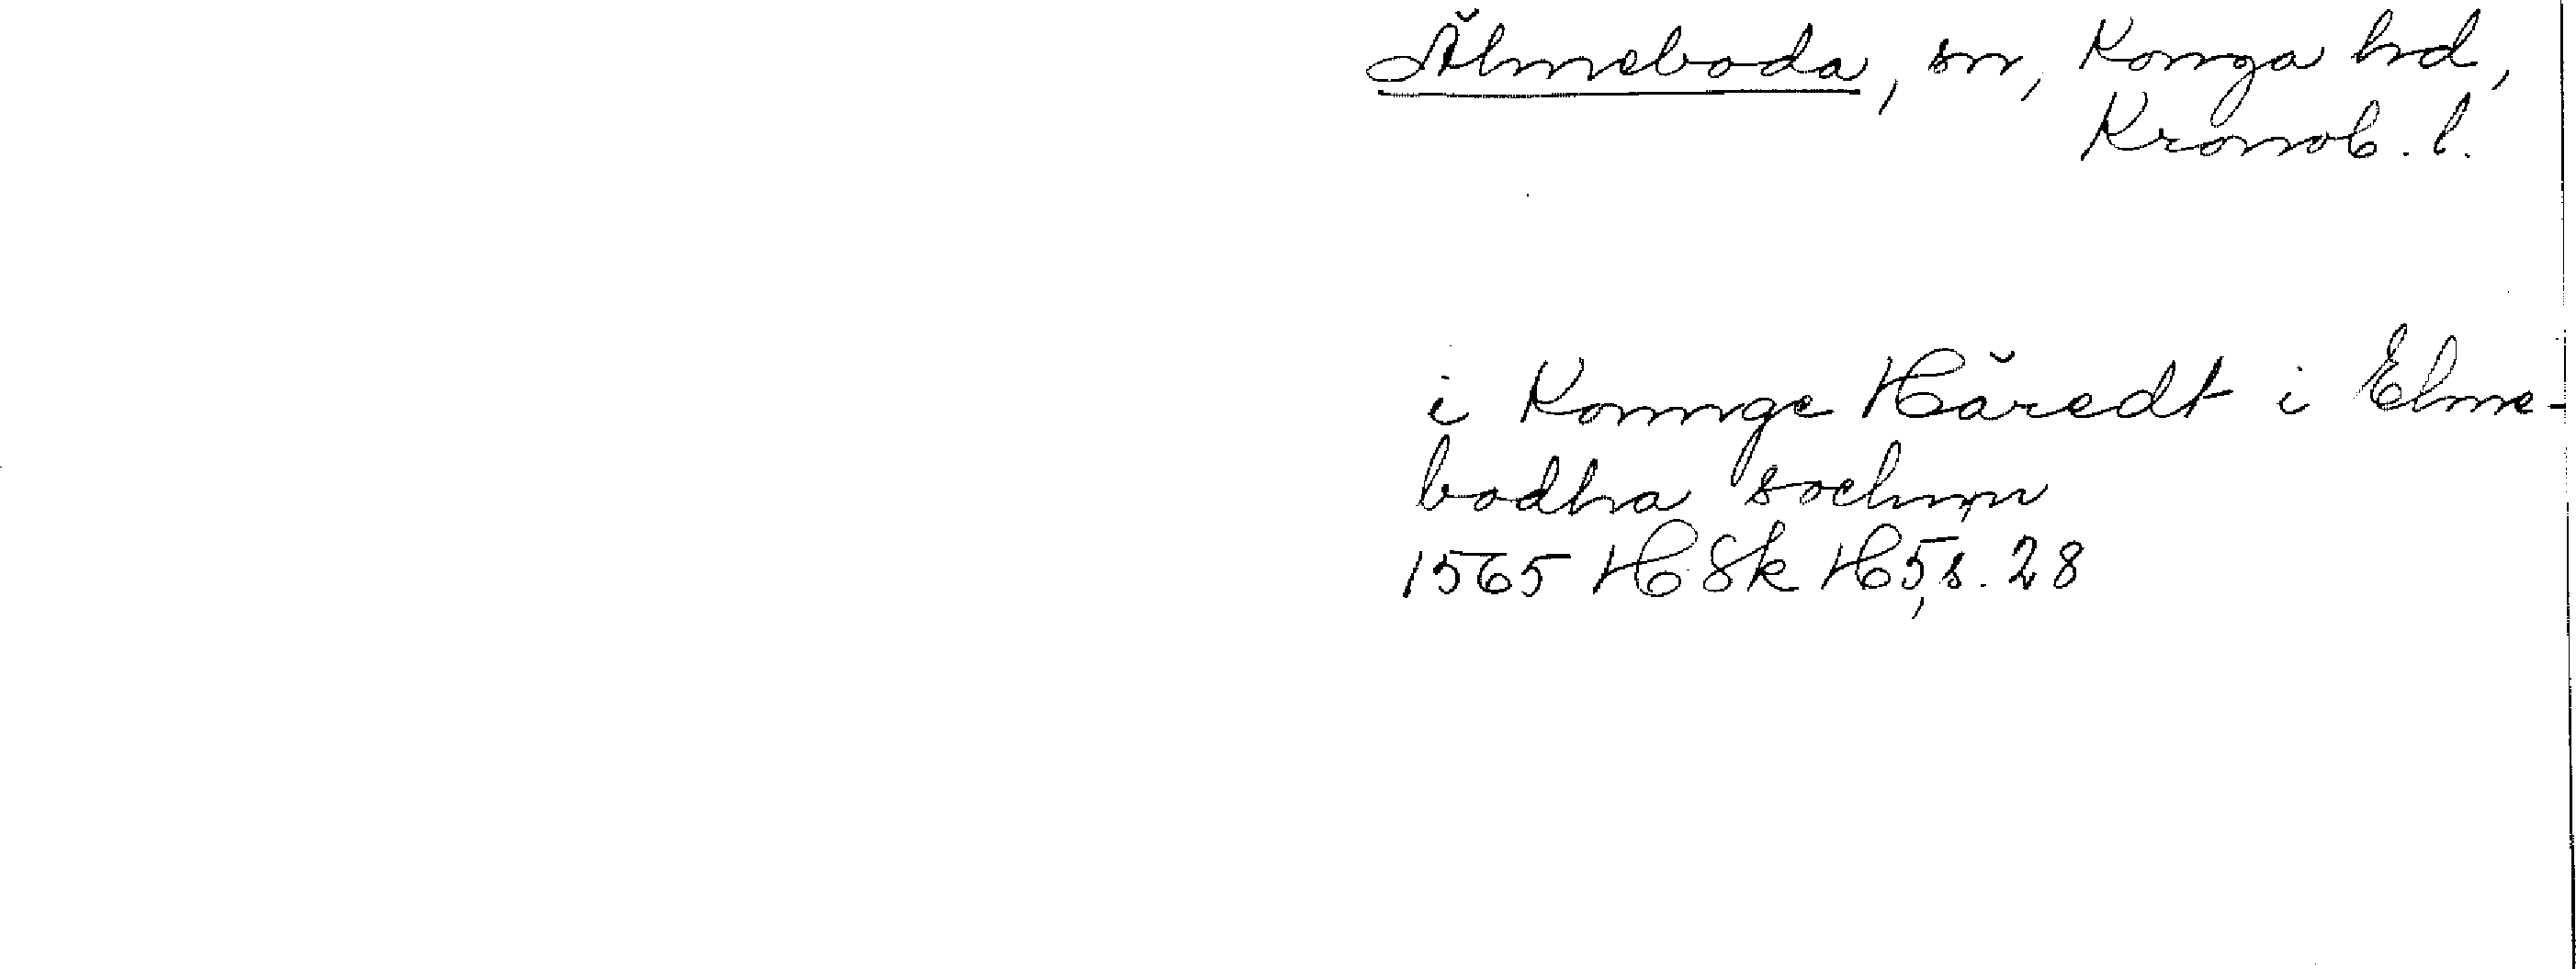 Älmeboda, sn, Konga hd,
Kronob. l.
i Konnge Häredt i Elme-
bodha sochnn
1565 HSk H5, s. 28